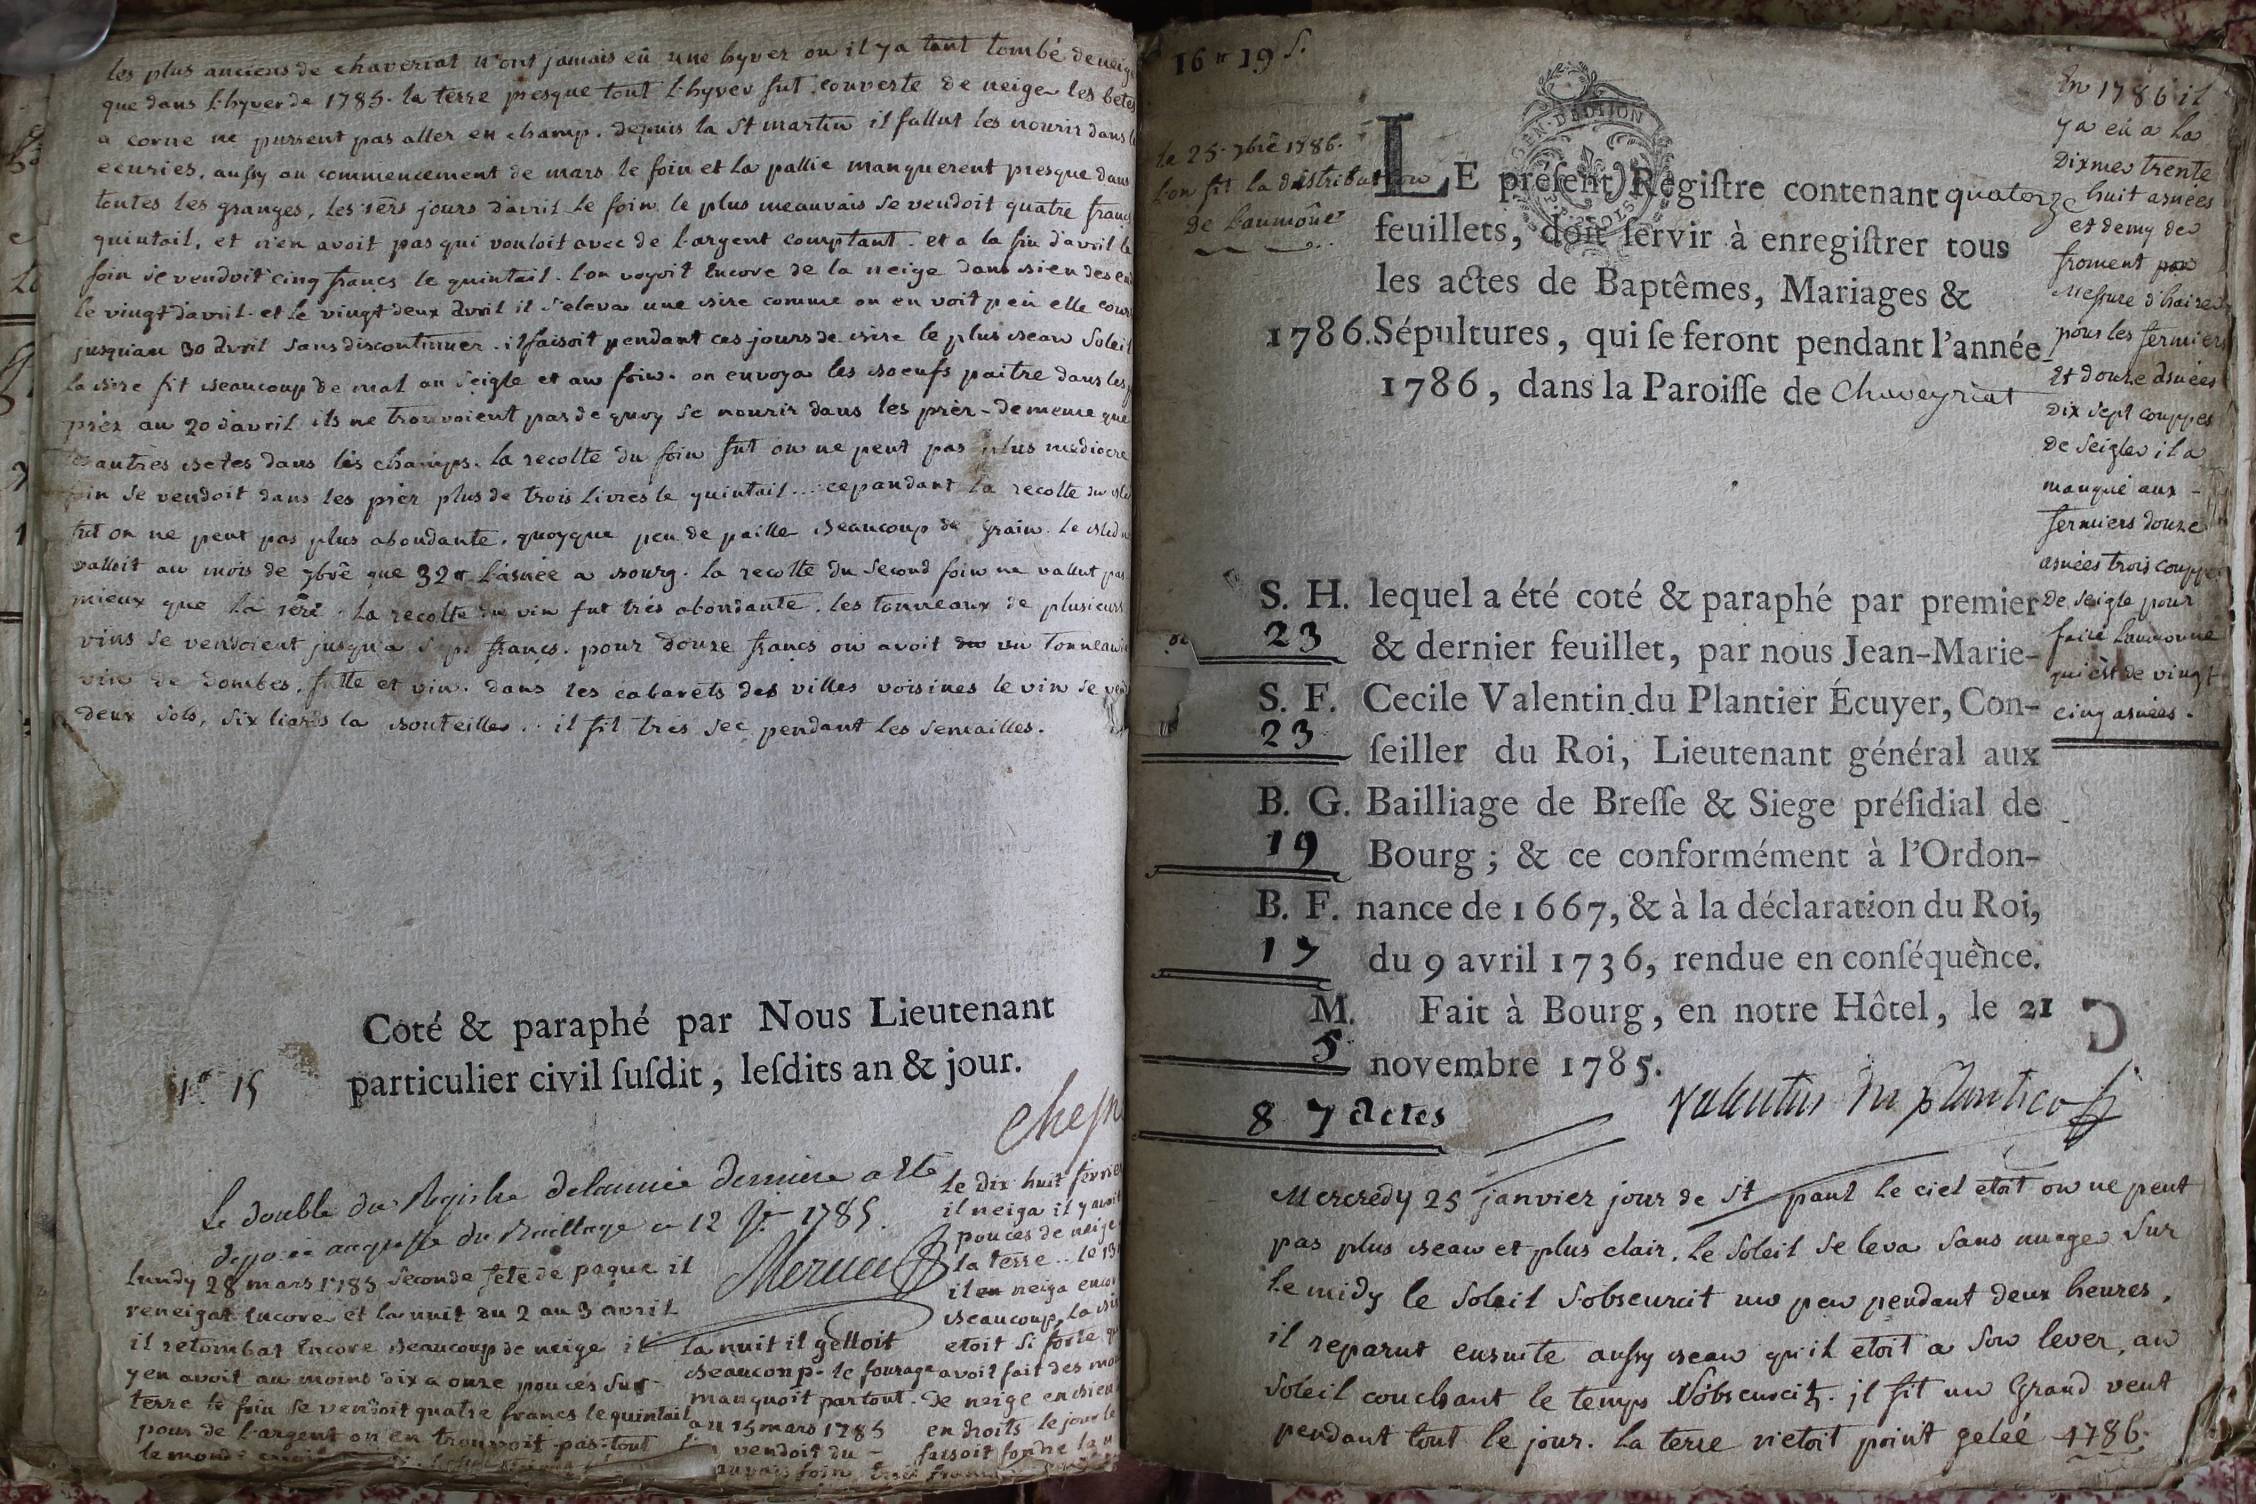 les plus anciens de chaveriat n'ont jamais eû une hyver ou il y a tant tombé de neige
que dans l'hyver de 1785. la terre presque tout l'hyver fut couverte de neige les betes
a corne ne pursent pas aller en champ. depuis la St martin il fallut les nourir dans
ecuries. aussy au commencement de mars le foin et la pallie manquerent presque dans
toutes les granges, les 1ers jours d'avril le foin le plus meauvais se vendoit quatre francs
quintail, et n'en avoit pas qui vouloit avec de l'argent comptant. et a la fin d'avril le
foin se vendoit cinq francs le quintail. l'on voyoit encore de la neige dans bien des
le vingt d'avril. et le vingt deux avril il s'eleva une bise comme on en voit peu elle
jusqu'au 30 avril sans discontinuer. il faisoit pendant ces jours de bise le plus beau Soleil
la bise fit beaucoup de mal au seigle et au foin. on envoya les boeufs paitre dans les
prèz au 20 d'avril ils ne trouvoient pas de quoy se nourir dans les prèz - de meme que
les autres betes dans les champs. la recolte du foin fut on ne peut pas plus mediocre
foin se vendoit dans les prèz plus de trois livres le quintail... cepandant la recolte du
fut on ne peut pas plus abondante. quoyque peu de paille beaucoup de grain. le bled
valloit au mois de 7bre que 32 tt l'asnée a bourg. la recolte du second foin ne vallut pas
mieux que la 1ere. la recolte du vin fut très abondante. les tonneaux de plusieurs
vins se vendoient jusqu'a sept francs. pour douze francs on avoit un tonneau
vin de dombes, futte et vin. dans les cabarets des villes voisines le vin se
deux sols, six liards la bouteille.. il fit tres sec pendant les semailles.
Coté & paraphé par Nous Lieutenant
particulier civil ſuſdit, leſdits an & jour.
15
Le double du Registre de l'année derniere a été
deposé au greffe du Bailliage ce 12 1785.
lundy 28 mars 1785 seconde fete de paque il
reneigat encore et la nuit du 2 au 3 avril
il retombat encore beaucoup de neige il
y en avoit au moins dix a onze pouces sur
terre le foin se vendoit quatre francs le quintail
pour de l'argent on en trouvoit pas. tout
le monde
la nuit il gelloit
beaucoup. le fourage
manquoit partout.
au 15 mars 1785
vendoit du
le dix huit fevrier
il neiga il y avoit
pouces de neige
la terre..
il en neiga encor
beaucoup, la
etoit si forte
avoit fait des
de neige en bien
endroits le jour le
faisoit fondre la
16 tt 19 s.
le 25. 7bre 1786.
l'on fit la distribution
de l'aumône
LE préſent Regiſtre contenant quatorze
feuillets, doit ſervir à enregiſtrer tous
les actes de Baptêmes, Mariages &
1786. Sépultures, qui ſe feront pendant l'année
1786, dans la Paroiſſe de Chaveyriat
S. H. lequel a été coté & paraphé par premier
23 & dernier feuillet, par nous Jean-Marie-
S. F. Cecile Valentin du Plantier Écuyer, Con-
23 ſeiller du Roi, Lieutenant général aux
B. G. Bailliage de Breſſe & Siege préſidial de
19 Bourg ; & ce conformément à l'Ordon-
B. F. nance de 1667, & à la déclaration du Roi,
17 du 9 avril 1736, rendue en conſéquence.
M. Fait à Bourg, en notre Hôtel, le 21
5 novembre 1785.
87 actes
Valentin du plantier
En 1786 il
y a eû a la
dixmes trente
huit asnées
et demy de
froment
Messure
pour les fermiers
et douze asnées
dix sept couppes
de seigle il a
manqué aux
fermiers douze
asnées trois couppes
de seigle pour
faire l'aumonne
qui est de vingt
cinq asnées.
Mercredy 25 janvier jour de St paul le ciel etoit on ne peut
pas plus beau et plus clair. le Soleil se leva sans nuages Sur
le midy le Soleil s'obscurcit un peu pendant deux heures,
il reparut ensuite aussy beau qu'il etoit a son lever, au
Soleil couchant le temps s'obscurcit. il fit un Grand vent
pendant tout le jour. la terre n'etoit point gelée 1786.